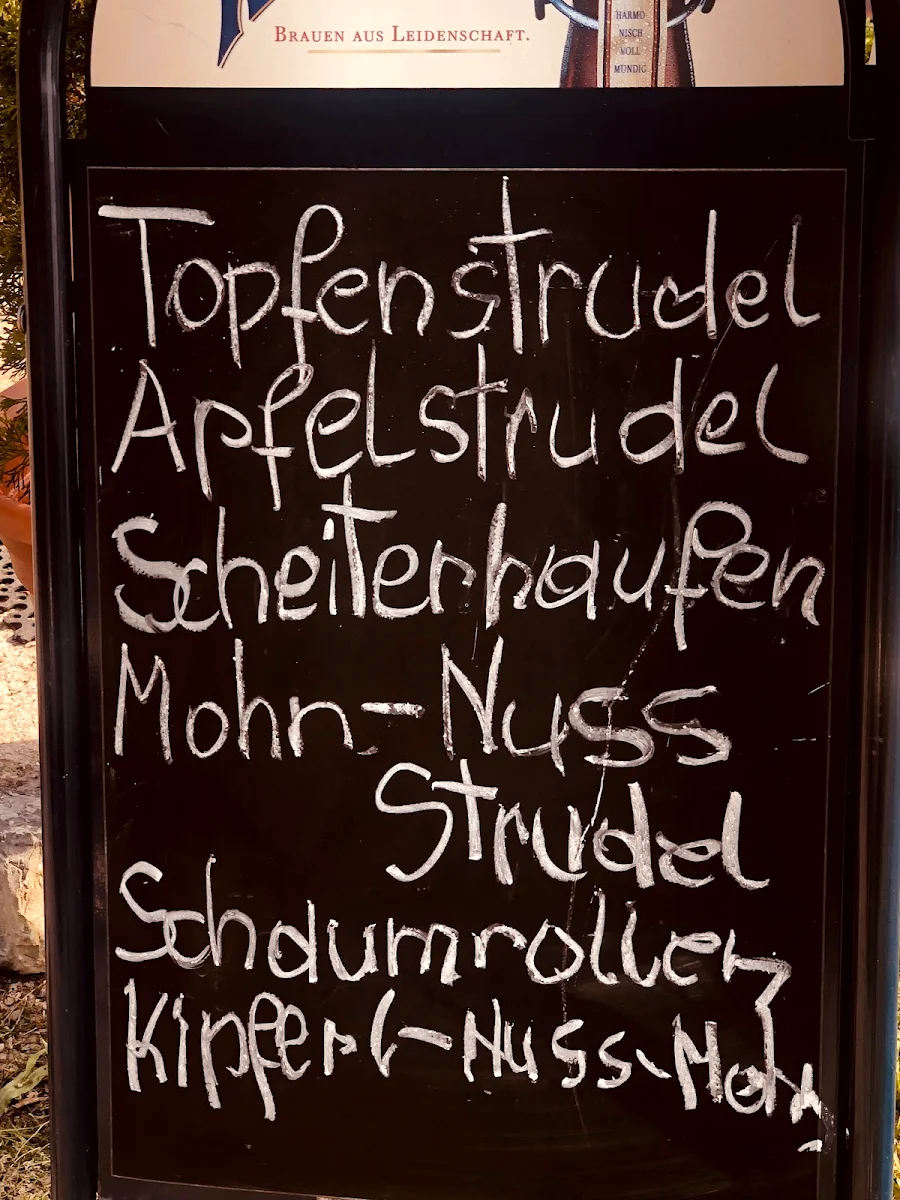 BRAUEN AUS LEIDENSCHAFT.
HARMO
NISCH
VOLL
MUNDIG
Topfenstrudel
Apfelstrudel
Scheiterhaufen
Mohn-Nuss
Strudel
Schaumrollen
Kipferl-Nuss-Mohn